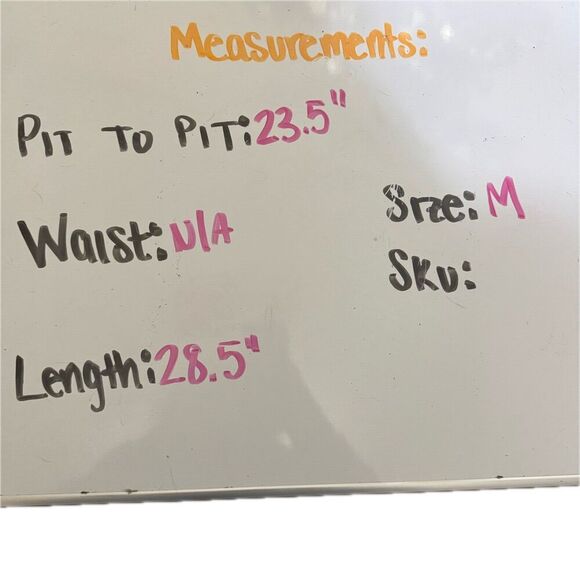 Measurements:
PIT TO PIT: 23.5"
Waist: N/A
Size: M
Sku:
Length: 28.5"